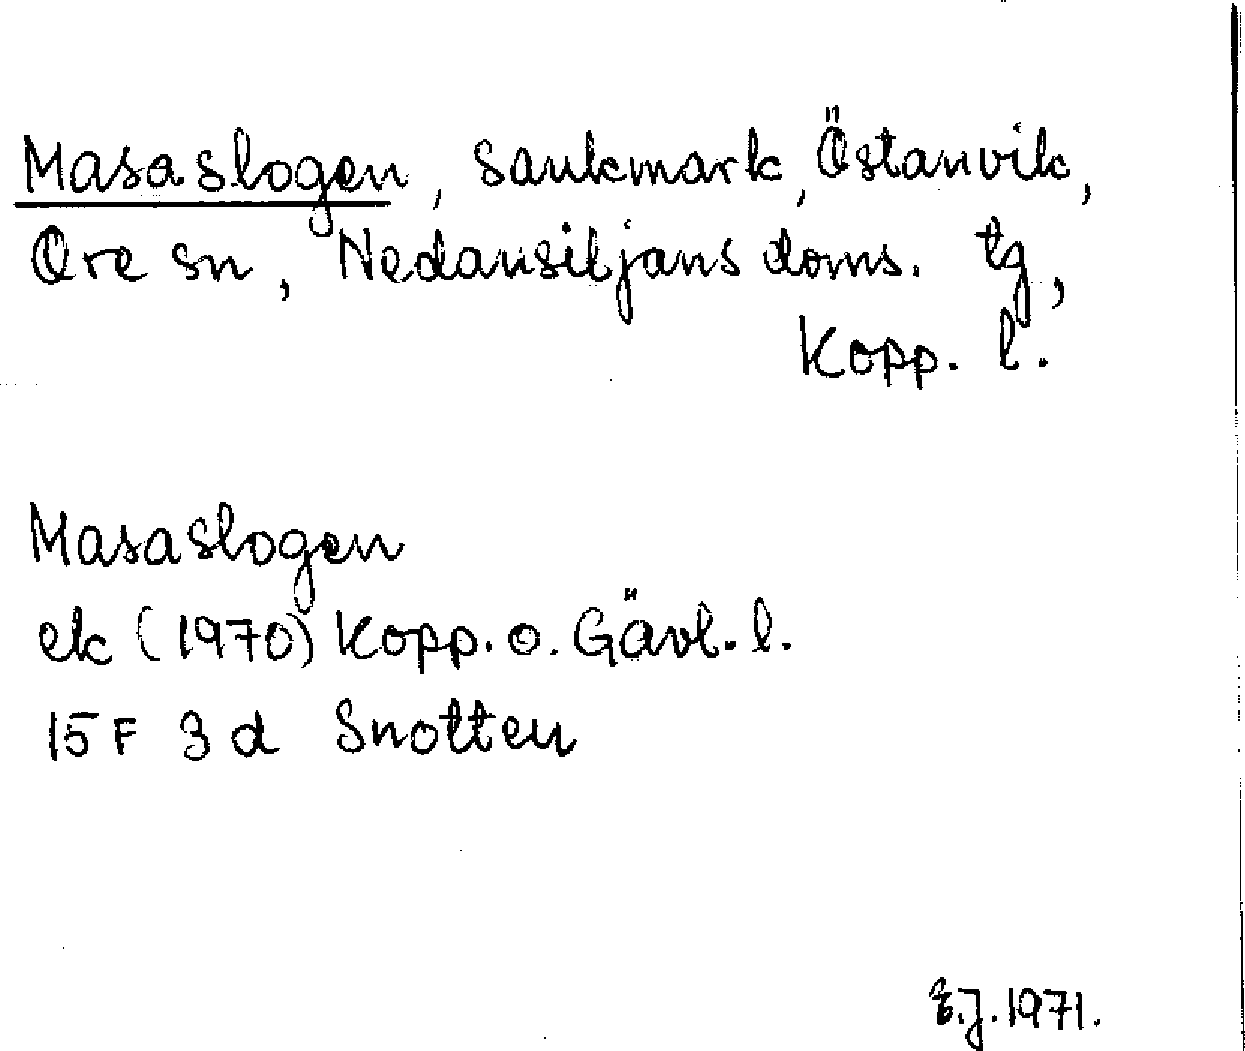 Masaslogen, sankmark, Östanvik,
Ore sn, Nedansiljans doms. tg,
Kopp. l.
Masaslogen
ek (1970) Kopp. o. Gävl. l.
15 F 3 d Snotten
E.J. 1971.